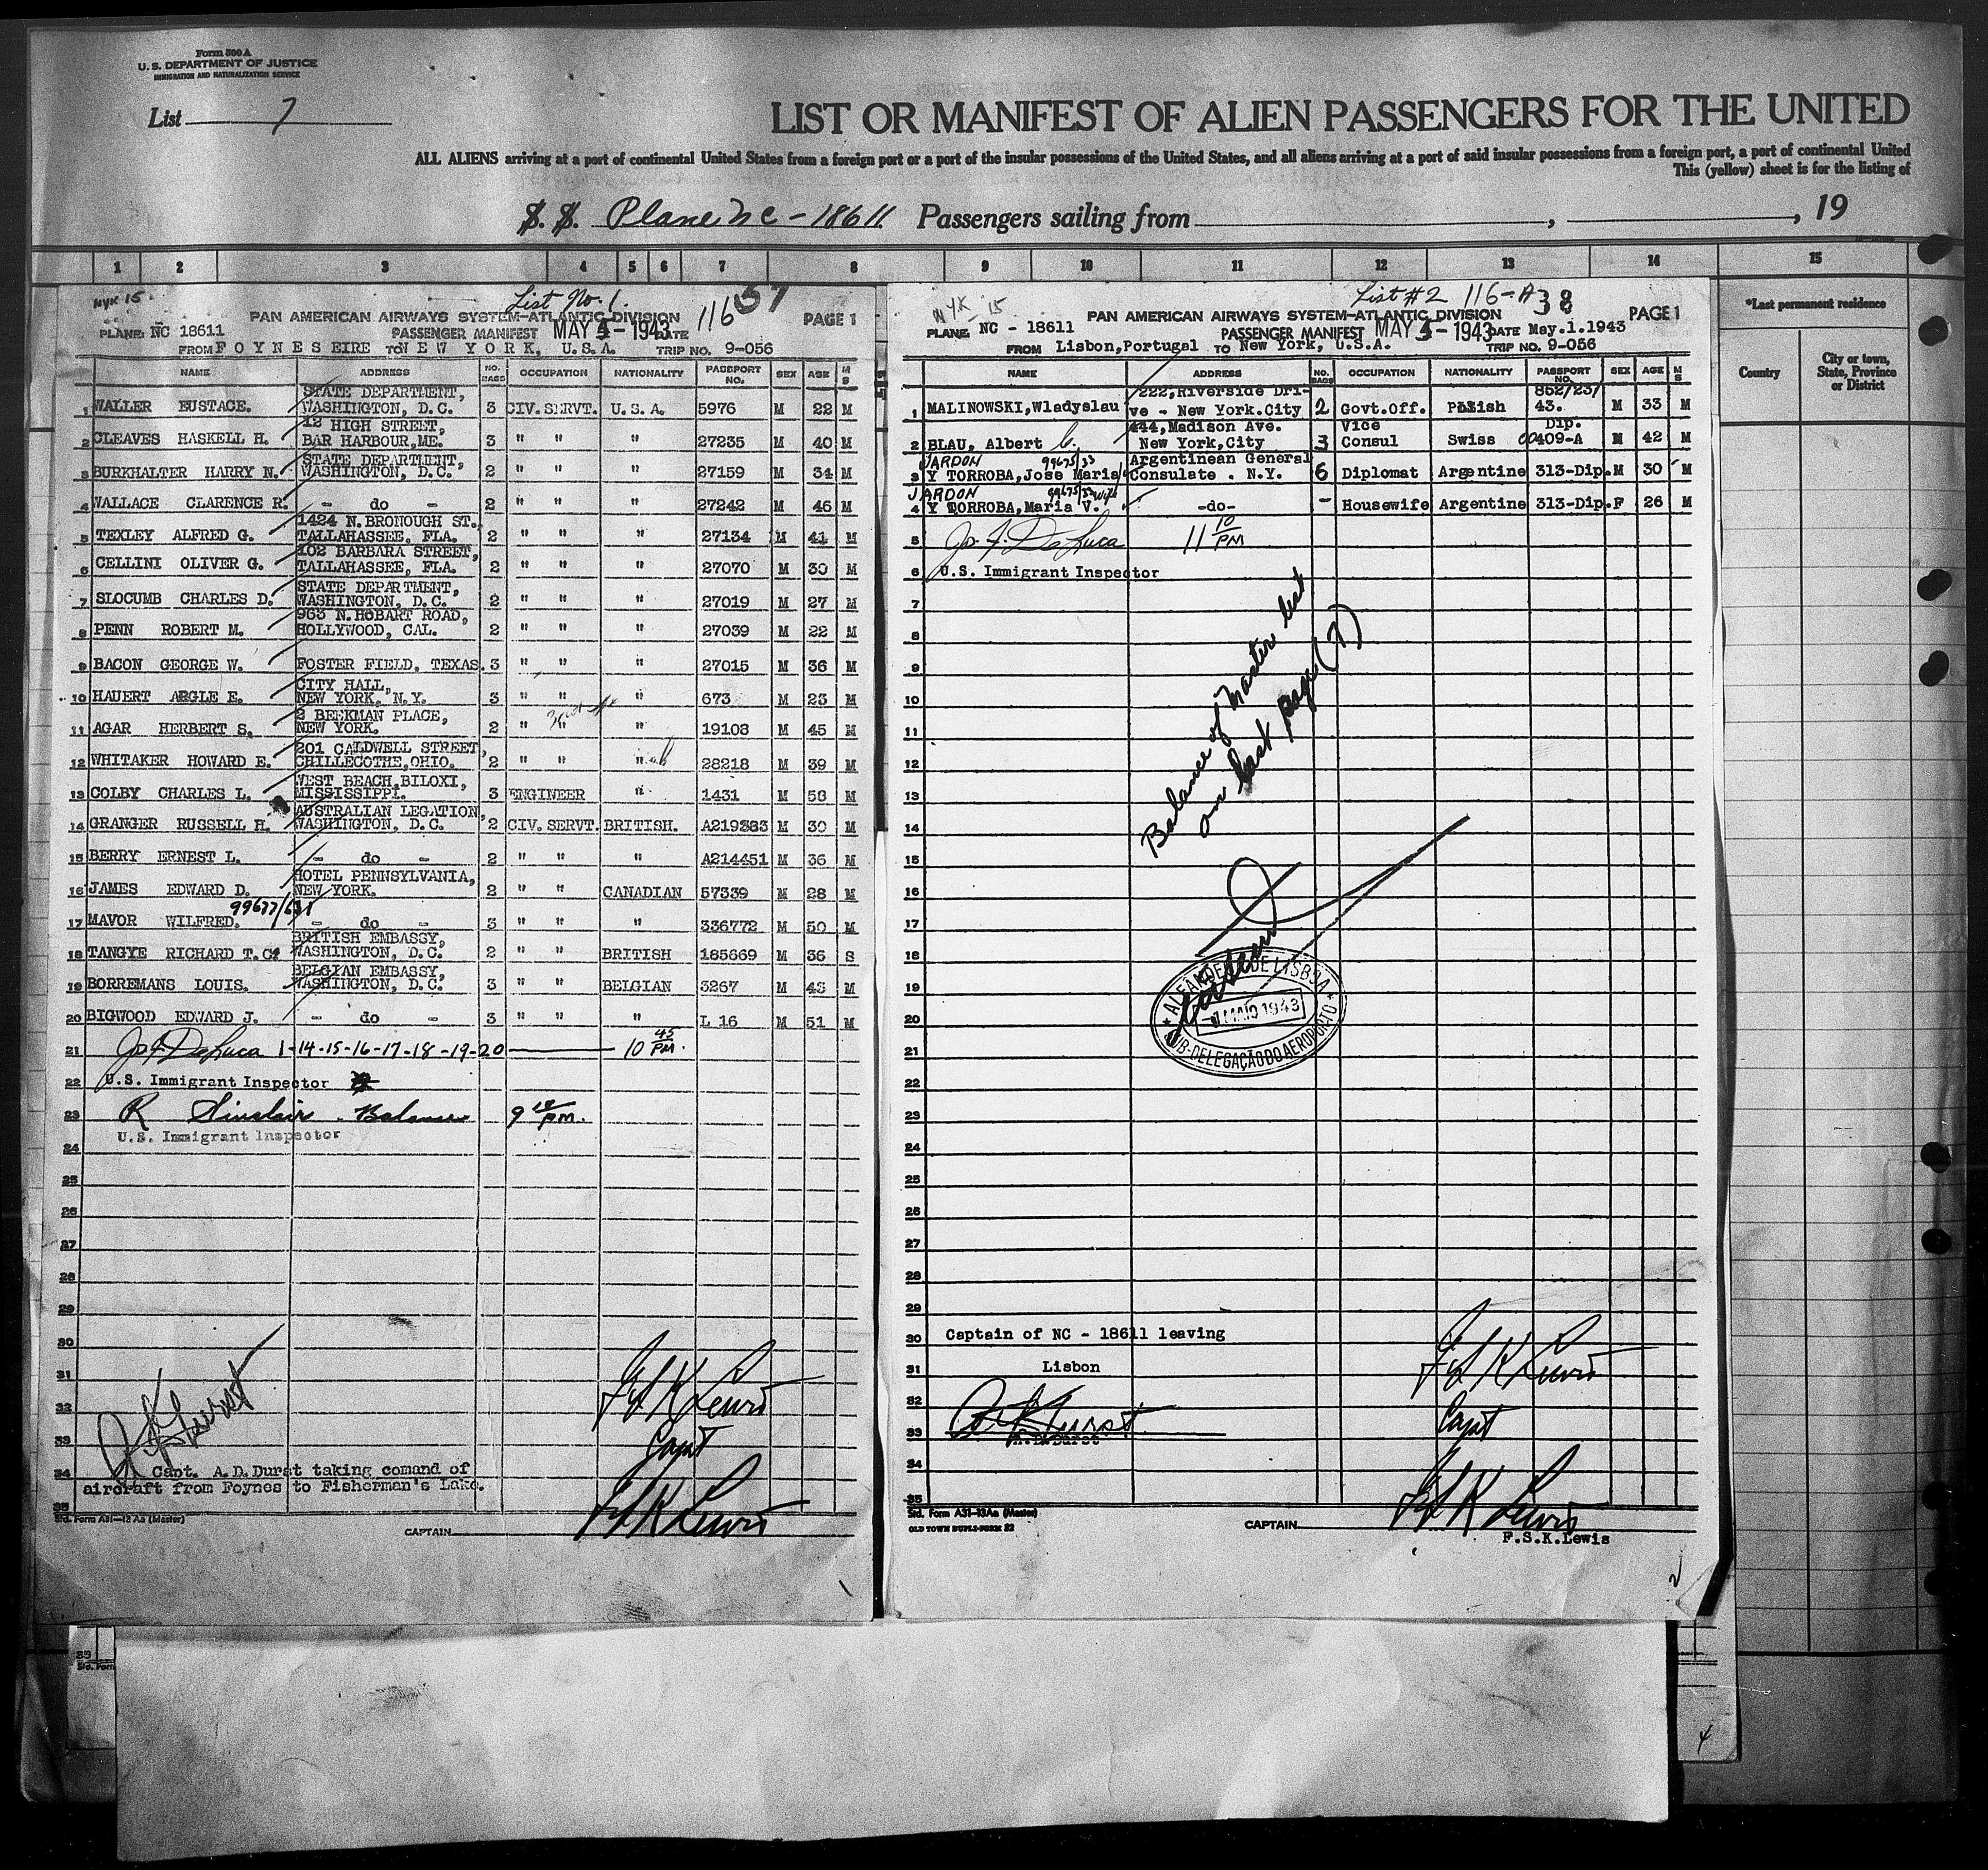 Form 500 A
U. S. DEPARTMENT OF JUSTICE
IMMIGRATION AND NATURALIZATION SERVICE
List 7
LIST OR MANIFEST OF ALIEN PASSENGERS FOR THE UNITED
ALL ALIENS arriving at a port of continental United States from a foreign port or a port of the insular possessions of the United States, and all aliens arriving at a port of said insular possessions from a foreign port, a port of continental United
This (yellow) sheet is for the listing of
S. S. Plane NC-18611 Passengers sailing from , , 19
1 2 3 4 5 6 7 8 9 10 11 12 13 14 15
NYK 15
List No. 1.
116 37
PAN AMERICAN AIRWAYS SYSTEM-ATLANTIC DIVISION PAGE 1
PLANE NC 18611 PASSENGER MANIFEST MAY 4-1943 DATE
FROM FOYNES EIRE TO NEW YORK, U.S.A. TRIP NO. 9-056
NAME ADDRESS NO. BAGS OCCUPATION NATIONALITY PASSPORT NO. SEX AGE M S
STATE DEPARTMENT,
1 WALLER EUSTACE. WASHINGTON, D.C. 3 CIV. SERVT. U.S.A. 5976 M 22 M
12 HIGH STREET,
2 CLEAVES HASKELL H. BAR HARBOUR, ME. 3 " " " 27235 M 40 M
STATE DEPARTMENT,
3 BURKHALTER HARRY N. WASHINGTON, D.C. 2 " " " 27159 M 34 M
4 WALLACE CLARENCE R. - do - 2 " " " 27242 M 46 M
1424 N. BRONOUGH ST.,
5 TEXLEY ALFRED G. TALLAHASSEE, FLA. 2 " " " 27134 M 41 M
102 BARBARA STREET,
6 CELLINI OLIVER G. TALLAHASSEE, FLA. 2 " " " 27070 M 30 M
STATE DEPARTMENT,
7 SLOCUMB CHARLES D. WASHINGTON, D.C. 2 " " " 27019 M 27 M
963 N. HOBART ROAD,
8 PENN ROBERT M. HOLLYWOOD, CAL. 2 " " " 27039 M 22 M
9 BACON GEORGE W. FOSTER FIELD, TEXAS. 3 " " " 27015 M 36 M
CITY HALL,
10 HAUERT ARGLE E. NEW YORK, N.Y. 3 " " " 673 M 23 M
2 BEEKMAN PLACE,
11 AGAR HERBERT S. NEW YORK. 2 " " " 19108 M 45 M
201 CALDWELL STREET,
12 WHITAKER HOWARD E. CHILLECOTHE, OHIO. 2 " " " 28218 M 39 M
WEST BEACH, BILOXI,
13 COLBY CHARLES L. MISSISSIPPI. 3 ENGINEER " 1431 M 58 M
AUSTRALIAN LEGATION,
14 GRANGER RUSSELL H. WASHINGTON, D.C. 2 CIV. SERVT. BRITISH. A219383 M 30 M
15 BERRY ERNEST L. - do - 2 " " " A214451 M 36 M
HOTEL PENNSYLVANIA,
16 JAMES EDWARD D. NEW YORK. 2 " " CANADIAN 57339 M 28 M
99677/631
17 MAVOR WILFRED. - do - 3 " " " 336772 M 50 M
BRITISH EMBASSY,
18 TANGYE RICHARD T.C. WASHINGTON, D.C. 2 " " BRITISH 185669 M 36 S
BELGIAN EMBASSY,
19 BORREMANS LOUIS. WASHINGTON, D.C. 3 " " BELGIAN 3267 M 43 M
20 BIGWOOD EDWARD J. - do - 3 " " " L 16 M 51 M
21 Jo. J. DeLuca 1-14-15-16-17-18-19-20 10 45 PM.
22 U.S. Immigrant Inspector
23 R Sinclair - Balance 9 10 PM.
U.S. Immigrant Inspector
24
25
26
27
28
29
30
31
32
33
34
35
A. D. Durst
F S K Lewis
Capt
Capt. A.D.Durst taking comand of
aircraft from Foynes to Fisherman's Lake.
Std. Form A31-13 Aa (Master)
CAPTAIN F S K Lewis
1
NYK 15
List #2 116-A 38
PAN AMERICAN AIRWAYS SYSTEM-ATLANTIC DIVISION PAGE 1
PLANE NC - 18611 PASSENGER MANIFEST MAY 4-1943 DATE May.1.1943
FROM Lisbon,Portugal TO New York, U.S.A. TRIP NO. 9-056
NAME ADDRESS NO. BAGS OCCUPATION NATIONALITY PASSPORT NO. SEX AGE M S
222,Riverside Dri- 852/23/
1 MALINOWSKI,Wladyslau ve - New York.City 2 Govt.Off. Polish 43. M 33 M
444,Madison Ave. Vice Dip.
2 BLAU, Albert New York,City 3 Consul Swiss 00409-A M 42 M
JARDON 99675/33 Argentinean General
3 Y TORROBA,Jose Maria Consulate . N.Y. 6 Diplomat Argentine 313-Dip. M 30 M
JARDON 99675/32 Wife
4 Y TORROBA,Maria V. -do- - Housewife Argentine 313-Dip. F 26 M
5 Jo. J. DeLuca 11 10 PM
6 U.S. Immigrant Inspector
7
8
9
10
11
12
13
14
15
16
17
18
19
20
21
22
23
24
25
26
27
28
29
Balance of Master list
on last page (7)
ALFÂNDEGA DE LISBOA
1 MAIO 1943
SUB-DELEGAÇÃO DO AEROPORTO
30 Captain of NC - 18611 leaving
31 Lisbon
32
33
34
35
F S K Lewis
Capt
A. D. Durst
A.D.Durst
Std. Form A31-13Aa (Master)
OLD TOWN DUPLI-FORM 22
CAPTAIN F S K Lewis
F.S.K.Lewis
2
*Last permanent residence
Country
City or town, State, Province or District
35
Std. Form
4